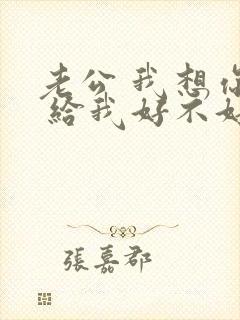 老公我想你
給我好不好
張嘉郡